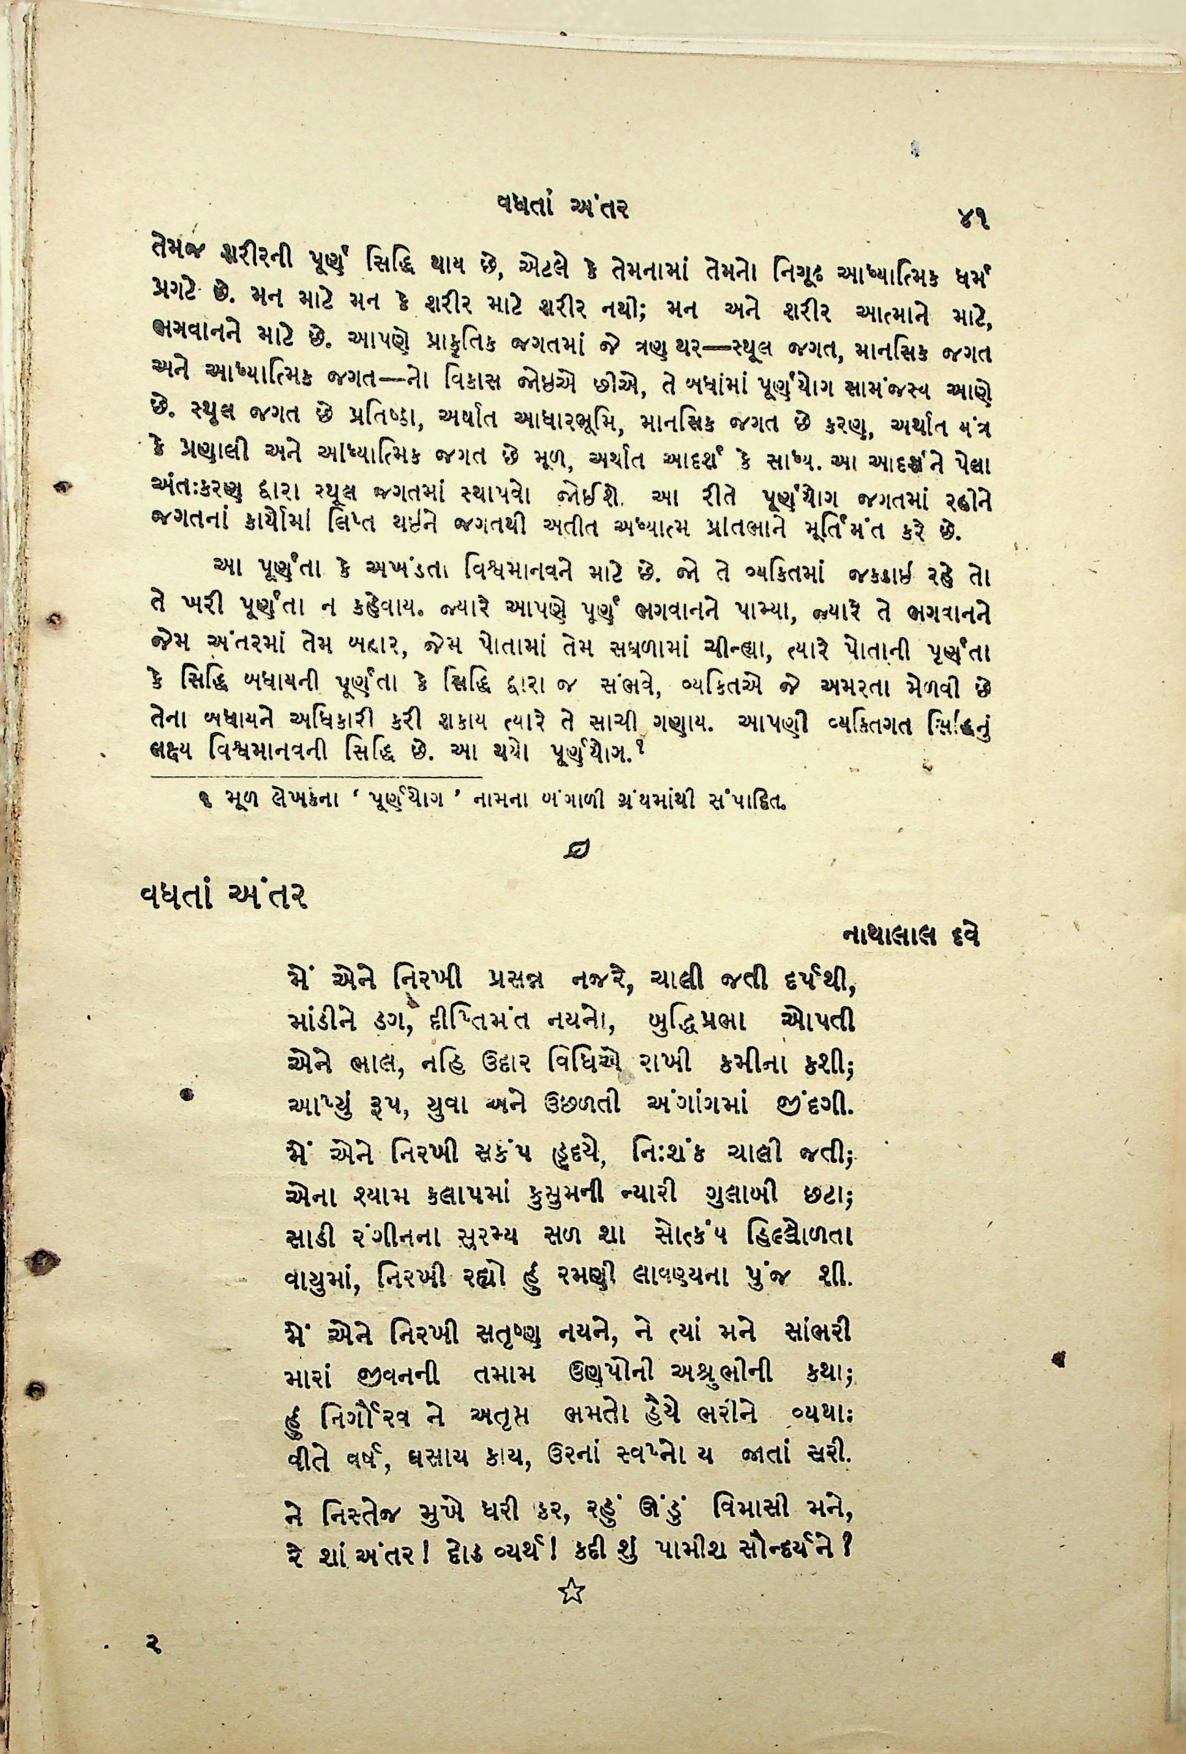 વધતાં અંતર ૪૧
તેમજ શરીરની પૂર્ણ સિદ્ધિ થાય છે, એટલે કે તેમનામાં તેમનો નિગૂઢ આધ્યાત્મિક ધર્મ
પ્રગટે છે. મન માટે મન કે શરીર માટે શરીર નથી; મન અને શરીર આત્માને માટે,
ભગવાનને માટે છે. આપણે પ્રાકૃતિક જગતમાં જે ત્રણ થર—સ્થૂલ જગત, માનસિક જગત
અને આધ્યાત્મિક જગત—નો વિકાસ જોઇએ છીએ, તે બધાંમાં પૂર્ણયોગ સામંજસ્ય આણે
છે. સ્થૂલ જગત છે પ્રતિષ્ઠા, અર્થાત આધારભૂમિ, માનસિક જગત છે કરણ, અર્થાત યંત્ર
કે પ્રણાલી અને આધ્યાત્મિક જગત છે મૂળ, અર્થાત આદર્શ કે સાધ્ય. આ આદર્શને પેલા
અંતઃકરણ દ્વારા સ્થૂલ જગતમાં સ્થાપવો જોઈશે. આ રીતે પૂર્ણયોગ જગતમાં રહીને
જગતનાં કાર્યોમાં લિપ્ત થઇને જગતથી અતીત અધ્યાત્મ પ્રતિભાને મૂર્તિમંત કરે છે.
આ પૂર્ણતા કે અખંડતા વિશ્વમાનવને માટે છે. જો તે વ્યક્તિમાં જકડાઇ રહે તો
તે ખરી પૂર્ણતા ન કહેવાય. જ્યારે આપણે પૂર્ણ ભગવાનને પામ્યા, જ્યારે તે ભગવાનને
જેમ અંતરમાં તેમ બહાર, જેમ પોતામાં તેમ સઘળામાં ચીન્હ્યા, ત્યારે પોતાની પૂર્ણતા
કે સિદ્ધિ બધાયની પૂર્ણતા કે સિદ્ધિ દ્વારા જ સંભવે, વ્યક્તિએ જે અમરતા મેળવી છે
તેના બધાયને અધિકારી કરી શકાય ત્યારે તે સાચી ગણાય. આપણી વ્યક્તિગત સિદ્ધિનું
લક્ષ્ય વિશ્વમાનવની સિદ્ધિ છે. આ થયો પૂર્ણયોગ.૧
૧ મૂળ લેખકના ‘ પૂર્ણયોગ ’ નામના બંગાળી ગ્રંથમાંથી સંપાદિત.
વધતાં અંતર
નાથાલાલ દવે
મેં એને નિરખી પ્રસન્ન નજરે, ચાલી જતી દર્પથી,
માંડીને ડગ, દીપ્તિમંત નયનો, બુદ્ધિપ્રભા ઓપતી
એને ભાલ, નહિ ઉદાર વિધિએ રાખી કમીના કશી;
આપ્યું રૂપ, યુવા અને ઉછળતી અંગાંગમાં જીંદગી.
મેં એને નિરખી સકંપ હૃદયે, નિઃશંક ચાલી જતી;
એના શ્યામ કલાપમાં કુસુમની ન્યારી ગુલાબી છટા;
સાડી રંગીનના સુરમ્ય સળ શા સોત્કંપ હિલ્લોળતા
વાયુમાં, નિરખી રહ્યો હું રમણી લાવણ્યના પુંજ શી.
મેં એને નિરખી સતૃષ્ણ નયને, ને ત્યાં મને સાંભરી
મારાં જીવનની તમામ ઉણપોની અશ્રુભીની કથા;
હું નિર્ગૌરવ ને અતૃપ્ત ભમતો હૈયે ભરીને વ્યથા:
વીતે વર્ષ, ઘસાય કાય, ઉરનાં સ્વપ્નો ય જાતાં સરી.
ને નિસ્તેજ મુખે ધરી કર, રહું ઊંડું વિમાસી મને,
રે શાં અંતર! દોડ વ્યર્થ! કદી શું પામીશ સૌન્દર્યને?
૨